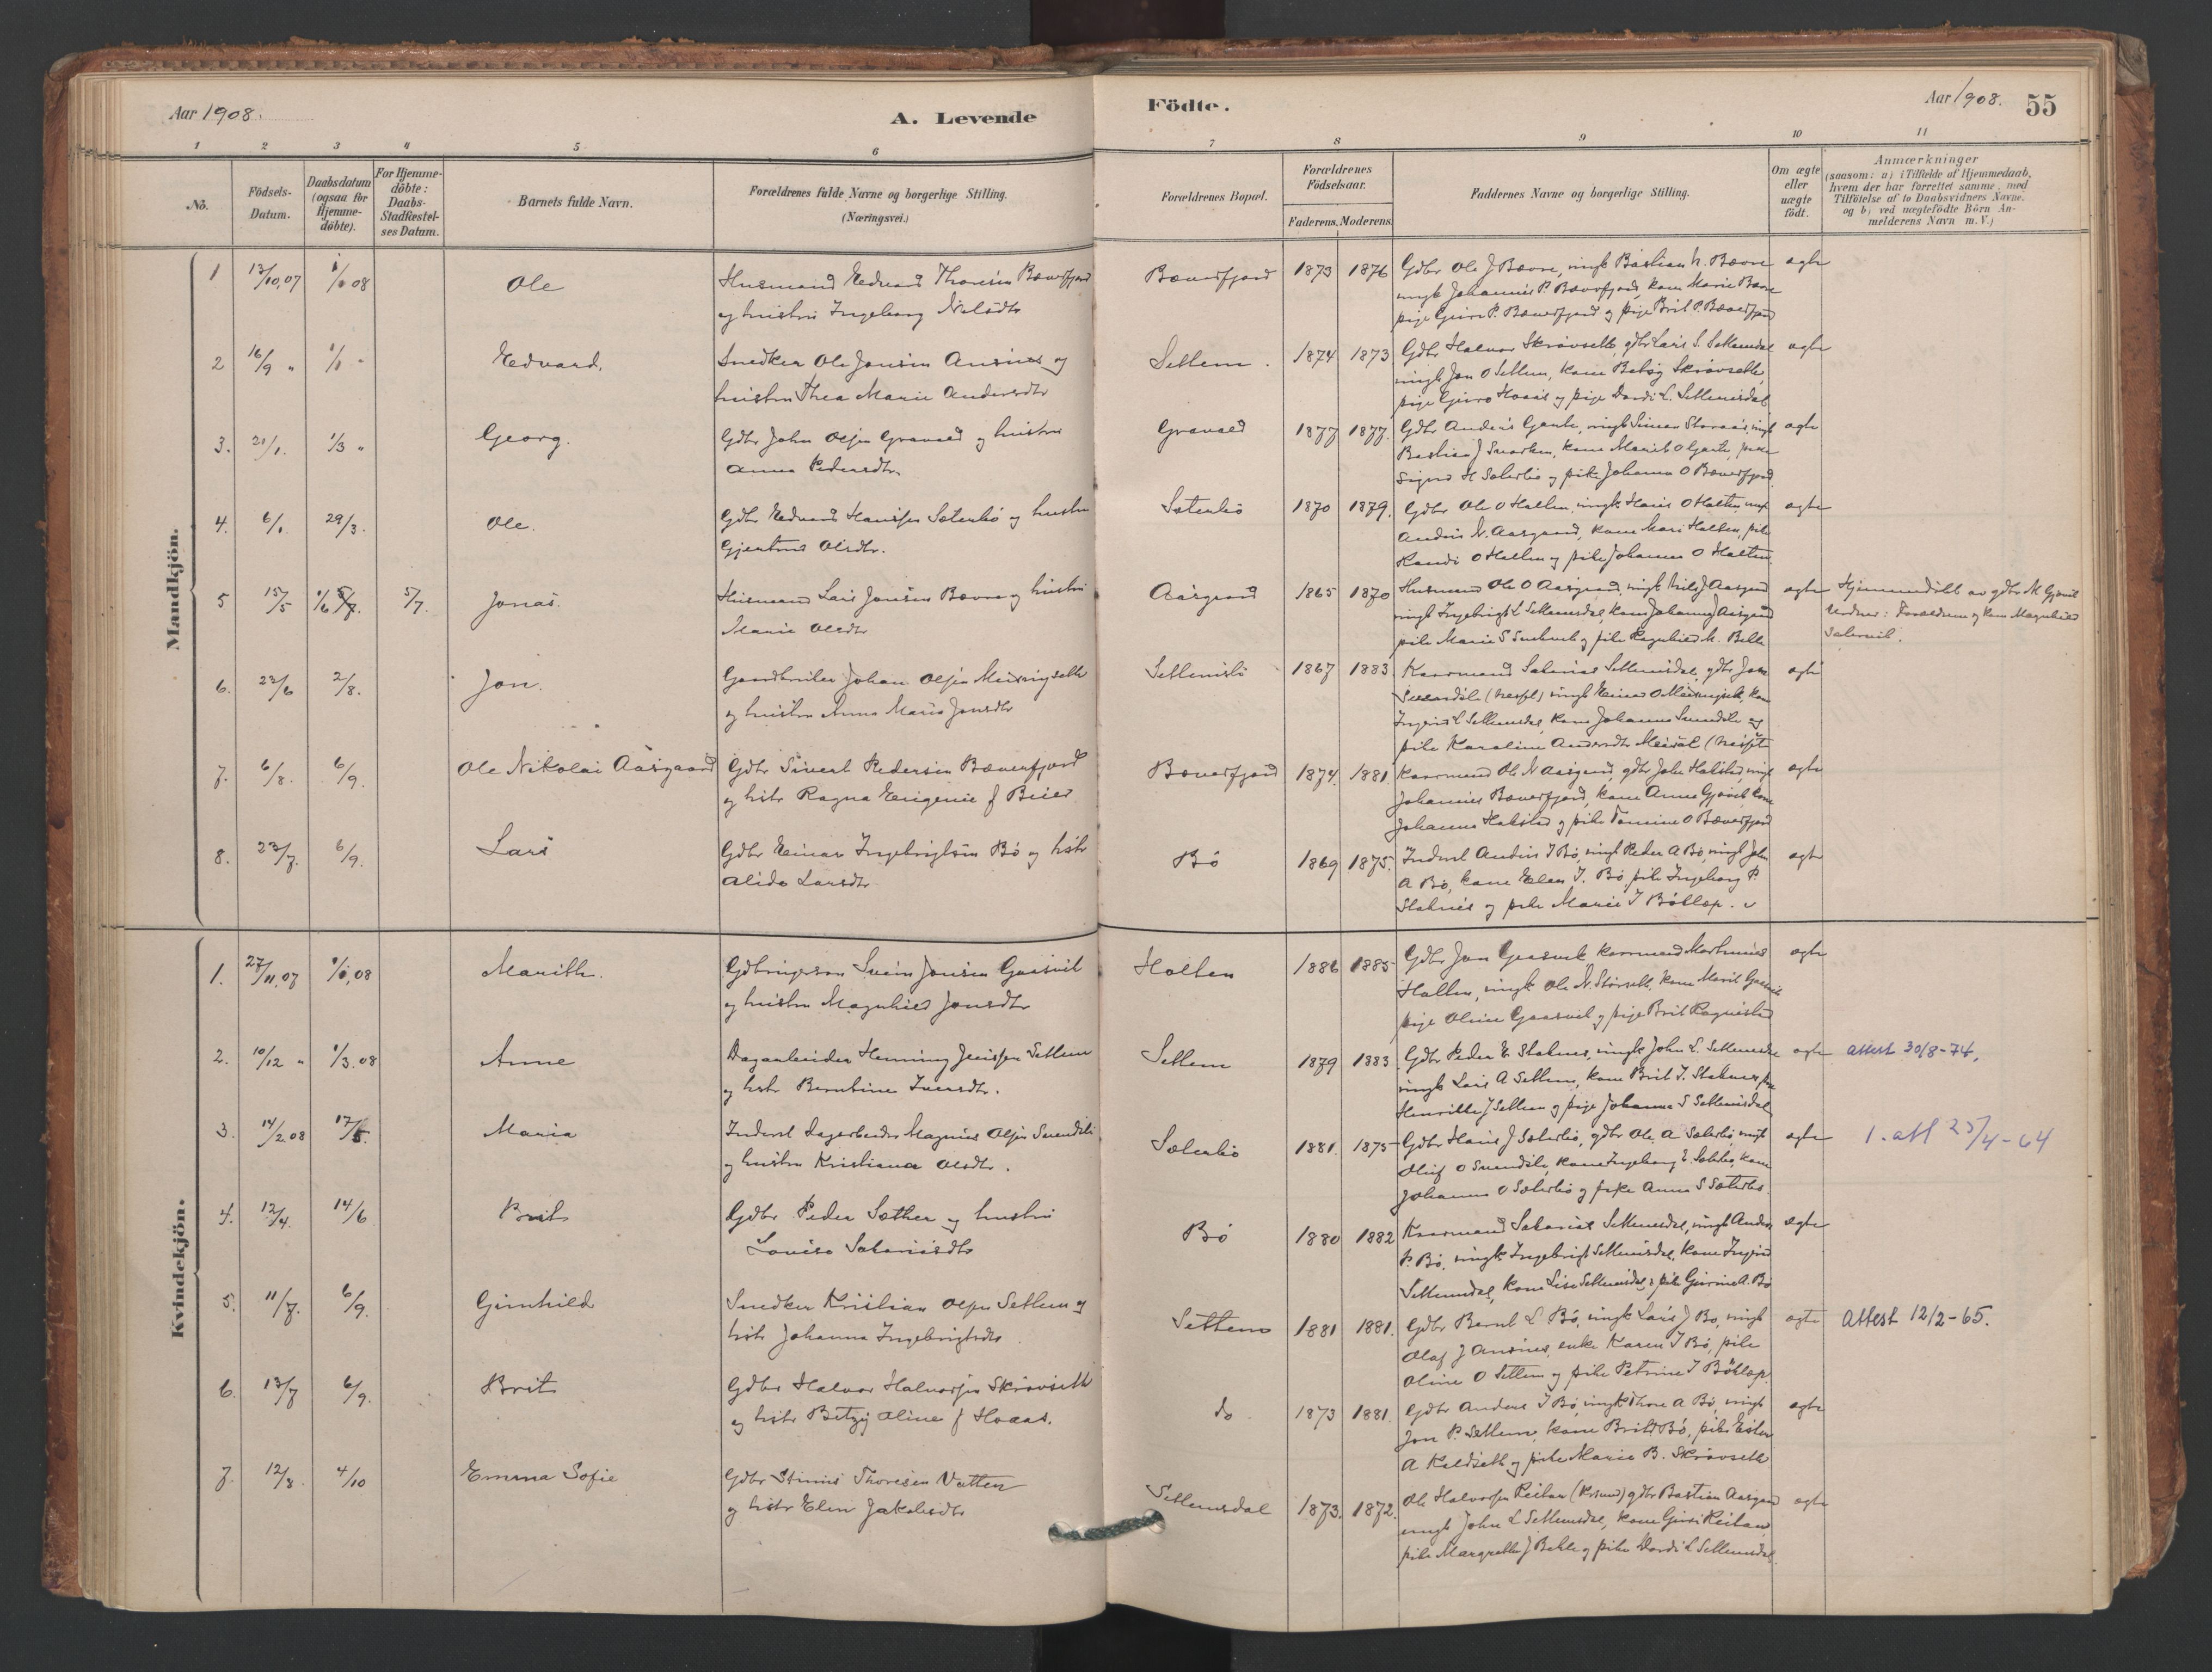 Aar 1908.
A. Levende
Födte.
Aar 1908.
55
1 2 3 4 5 6 7 8 9 10 11
No.
Födsels-Datum.
Daabsdatum (ogsaa for Hjemme-döbte).
For Hjemme-döbte: Daabs-Stadfæstel-ses Datum.
Barnets fulde Navn.
Forældrenes fulde Navne og borgerlige Stilling.
(Næringsvei.)
Forældrenes Bopæl.
Forældrenes Födselsaar.
Faderens. Moderens.
Faddernes Navne og borgerlige Stilling.
Om ægte eller uægte födt.
Anmærkninger
(saasom: a) i Tilfælde af Hjemmedaab,
hvem der har forrettet samme, med
Tilföielse af to Daabsvidners Navne.
og b) ved uægtefödte Börn An-
melderens Navn m. V.)
Mandkjön.
1 13/10,07 1/1 08 Ole
Husmand Edvard Thoresen Bæverfjord
og hustru Ingeborg Nilsdtr
Bæverfjord 1873 1876
Gdbr Ole J Bævre, ungk Bastian N. Bævre
ungk Johannes P. Bæverfjord, kone Marie Bævre
pige Guro P. Bæverfjord og pige Brit P. Bæverfjord
ægte
2 16/9 " 1/1 " Edvard.
Snedker Ole Jonsen Ansnes og
hustru Thea Marie Andersdtr
Settem. 1874 1873
Gdbr Halvor Skrøvseth, gdbr Lars S. Settemsdal
ungk Jon O Settem, kone Betzy Skrøvseth,
pige Guro Hoaas og pige Dordi L. Settemsdal
ægte
3. 20/1. 1/3 " Georg.
Gdbr John Olsen Gravald og hustru
Anna Pedersdtr.
Gravald 1877 1877.
Gdbr Anders Gaute, ungk Simon Storaas, ungk
Bastian J Snorken, kone Marit O Gaute, pike
Signe H Sæterbø og pike Johanna O Bæverfjord
ægte
4. 6/1. 29/3. Ole.
Gdbr Edvard Hansen Sæterbø og hustru
Gjertrud Olsdtr.
Sæterbø 1870 1879.
Gdbr Ole O Halten, ungk Hans O Halten, ungk
Anders N. Aasgaard, kone Mari Halten, pike
Randi O Halten og pike Johanna O Halten
ægte
5 15/5 1/6 5/7. 5/7. Jonas.
Husmand Lars Jonsen Bævre og hustru
Marie Olsdtr
Aasgaard 1865 1870
Husmand Ole O Aasgaard, ungk Nils J Aasgaard
ungk Ingebrigt L Settemsdal, kone Johanna J Aasgaard
pike Marie S
ægte
Hjemmedöbt av gdbr M Gjøvik
Vidner: Forældrene og kone Magnhild
6. 22/6 2/8. Jon.
Gaardbruker Johan Olsen Meisingseth
og hustru Anne Marie Jonsdtr
1867 1883
Kaarmand Sakarias Settemsdal, gdbr Jon
Svendsli (Nesset) ungk Einar O Meisingseth, kone
Ingrid L Settemsdal, kone Johanna Svendsli og
pike Karoline Andersdtr Meisal (Nesset
ægte
7. 6/8. 6/9. Ole Nikolai Aasgaard
Gdbr Sivert Pedersen Bæverfjord
og hstr Ragna Eugenie f Beier
Bæverfjord 1874. 1881.
Kaarmand Ole N Aasgaard, gdbr John Halsted, ungk
Johannes Bæverfjord, kone Anne Gjøvik, kone
Johanna Halsted og pike Tomine O Bæverfjord
ægte
8. 23/7. 6/9. Lars
Gdbr Einar Ingebrigtsen Bø og hstr
Alida Larsdtr
Bø 1869 1875.
Inderst Anders I Bø, ungk Peder A Bø, ungk John
A Bø, kone Elen I. Bø pike Ingeborg P.
Stalnes og pike Marie I Bøklep.
ægte
Kvindekjön.
1. 27/11.07 1/1.08 Marith.
Gdbrugerson Svein Jonsen Gaasvik
og hustru Magnhild Jonsdtr
Halten 1886 1885
Gdbr Jon Gaasvik kaarmand Martinus
Halten, ungk Ole N. Störseth, kone Marit Gaasvik
pige Oline Gaasvik og pige Brit Ragnistad
ægte
2. 10/12 " 1/3.08 Anne
Dagarbeider Henning Jensen Settem
og hstr Berntine Iversdtr.
Settem 1879 1883
Gdbr Peder E. Stalnes, ungk John L. Settemsdal
ungk Lars A Settem, kone Brit I. Stalnes, pike
Henrikke J Settem og pige Johanna S Settemsdal
ægte
attest 30/8-74.
3. 14/2.08 17/5. Maria
Inderst Dagarbeider Magnus Olsen Svendsli
og hustru Kristiana Olsdtr.
Sæterbø 1881. 1875
Gdbr Hans J Sæterbø, gdbr Ole A Sæterbø ungk
Oluf O Svendsli, kone Ingeborg E. Sæterbø, kone
Johanna O Sæterbø og pike Anna S Sæterbø.
ægte
1. att 23/4-64
4. 12/4. 14/6 Brit
Gdbr Peder Sæther og hustru
Lovise Sakariasdtr
Bø 1880 1882
Kaarmand Sakarias Settemsdal, ungk Anders
P. Bø, ungk Ingebrigt Settemsdal, kone Ingrid
Settemsdal, kone Lise Settemsdal og pike Gurine A. Bø
ægte
5. 11/7. 6/9. Gunhild
Snedker Kristian Olsen Settem og
hstr Johanna Ingebrigtsdtr.
Settem 1881 1881.
Gdbr Bernt L Bø, ungk Lars J Bø, ungk
Olaf J Ansnes, enke Karen I Bø, pike
Oline O Settem og pike Petrine I Bøklep.
ægte
Attest 12/2-65.
6. 13/7 6/9. Brit
Gdbr Halvor Halvorsen Skrøvseth
og hstr Betzy Oline f Hoaas.
do 1873 1881.
Gdbr Anders I Bø, ungk Thore A Bø, ungk
Jon P. Settem, kone Brit Bø, pike Ester
A Kaldseth og pike Marie B. Skrøvseth
ægte
7. 12/8 4/10 Emma Sofie
Gdbr Thoresen Vatten
og hstr Elen Jakobsdtr
Settemsdal 1873. 1872.
Ole Halvorsen Reitan (Krsund) gdbr Bastian Aasgaard
ungk John L Settemsdal, kone Guri Reitan,
pike Margrethe J Bekle og pike Dordi L Settemsdal.
ægte